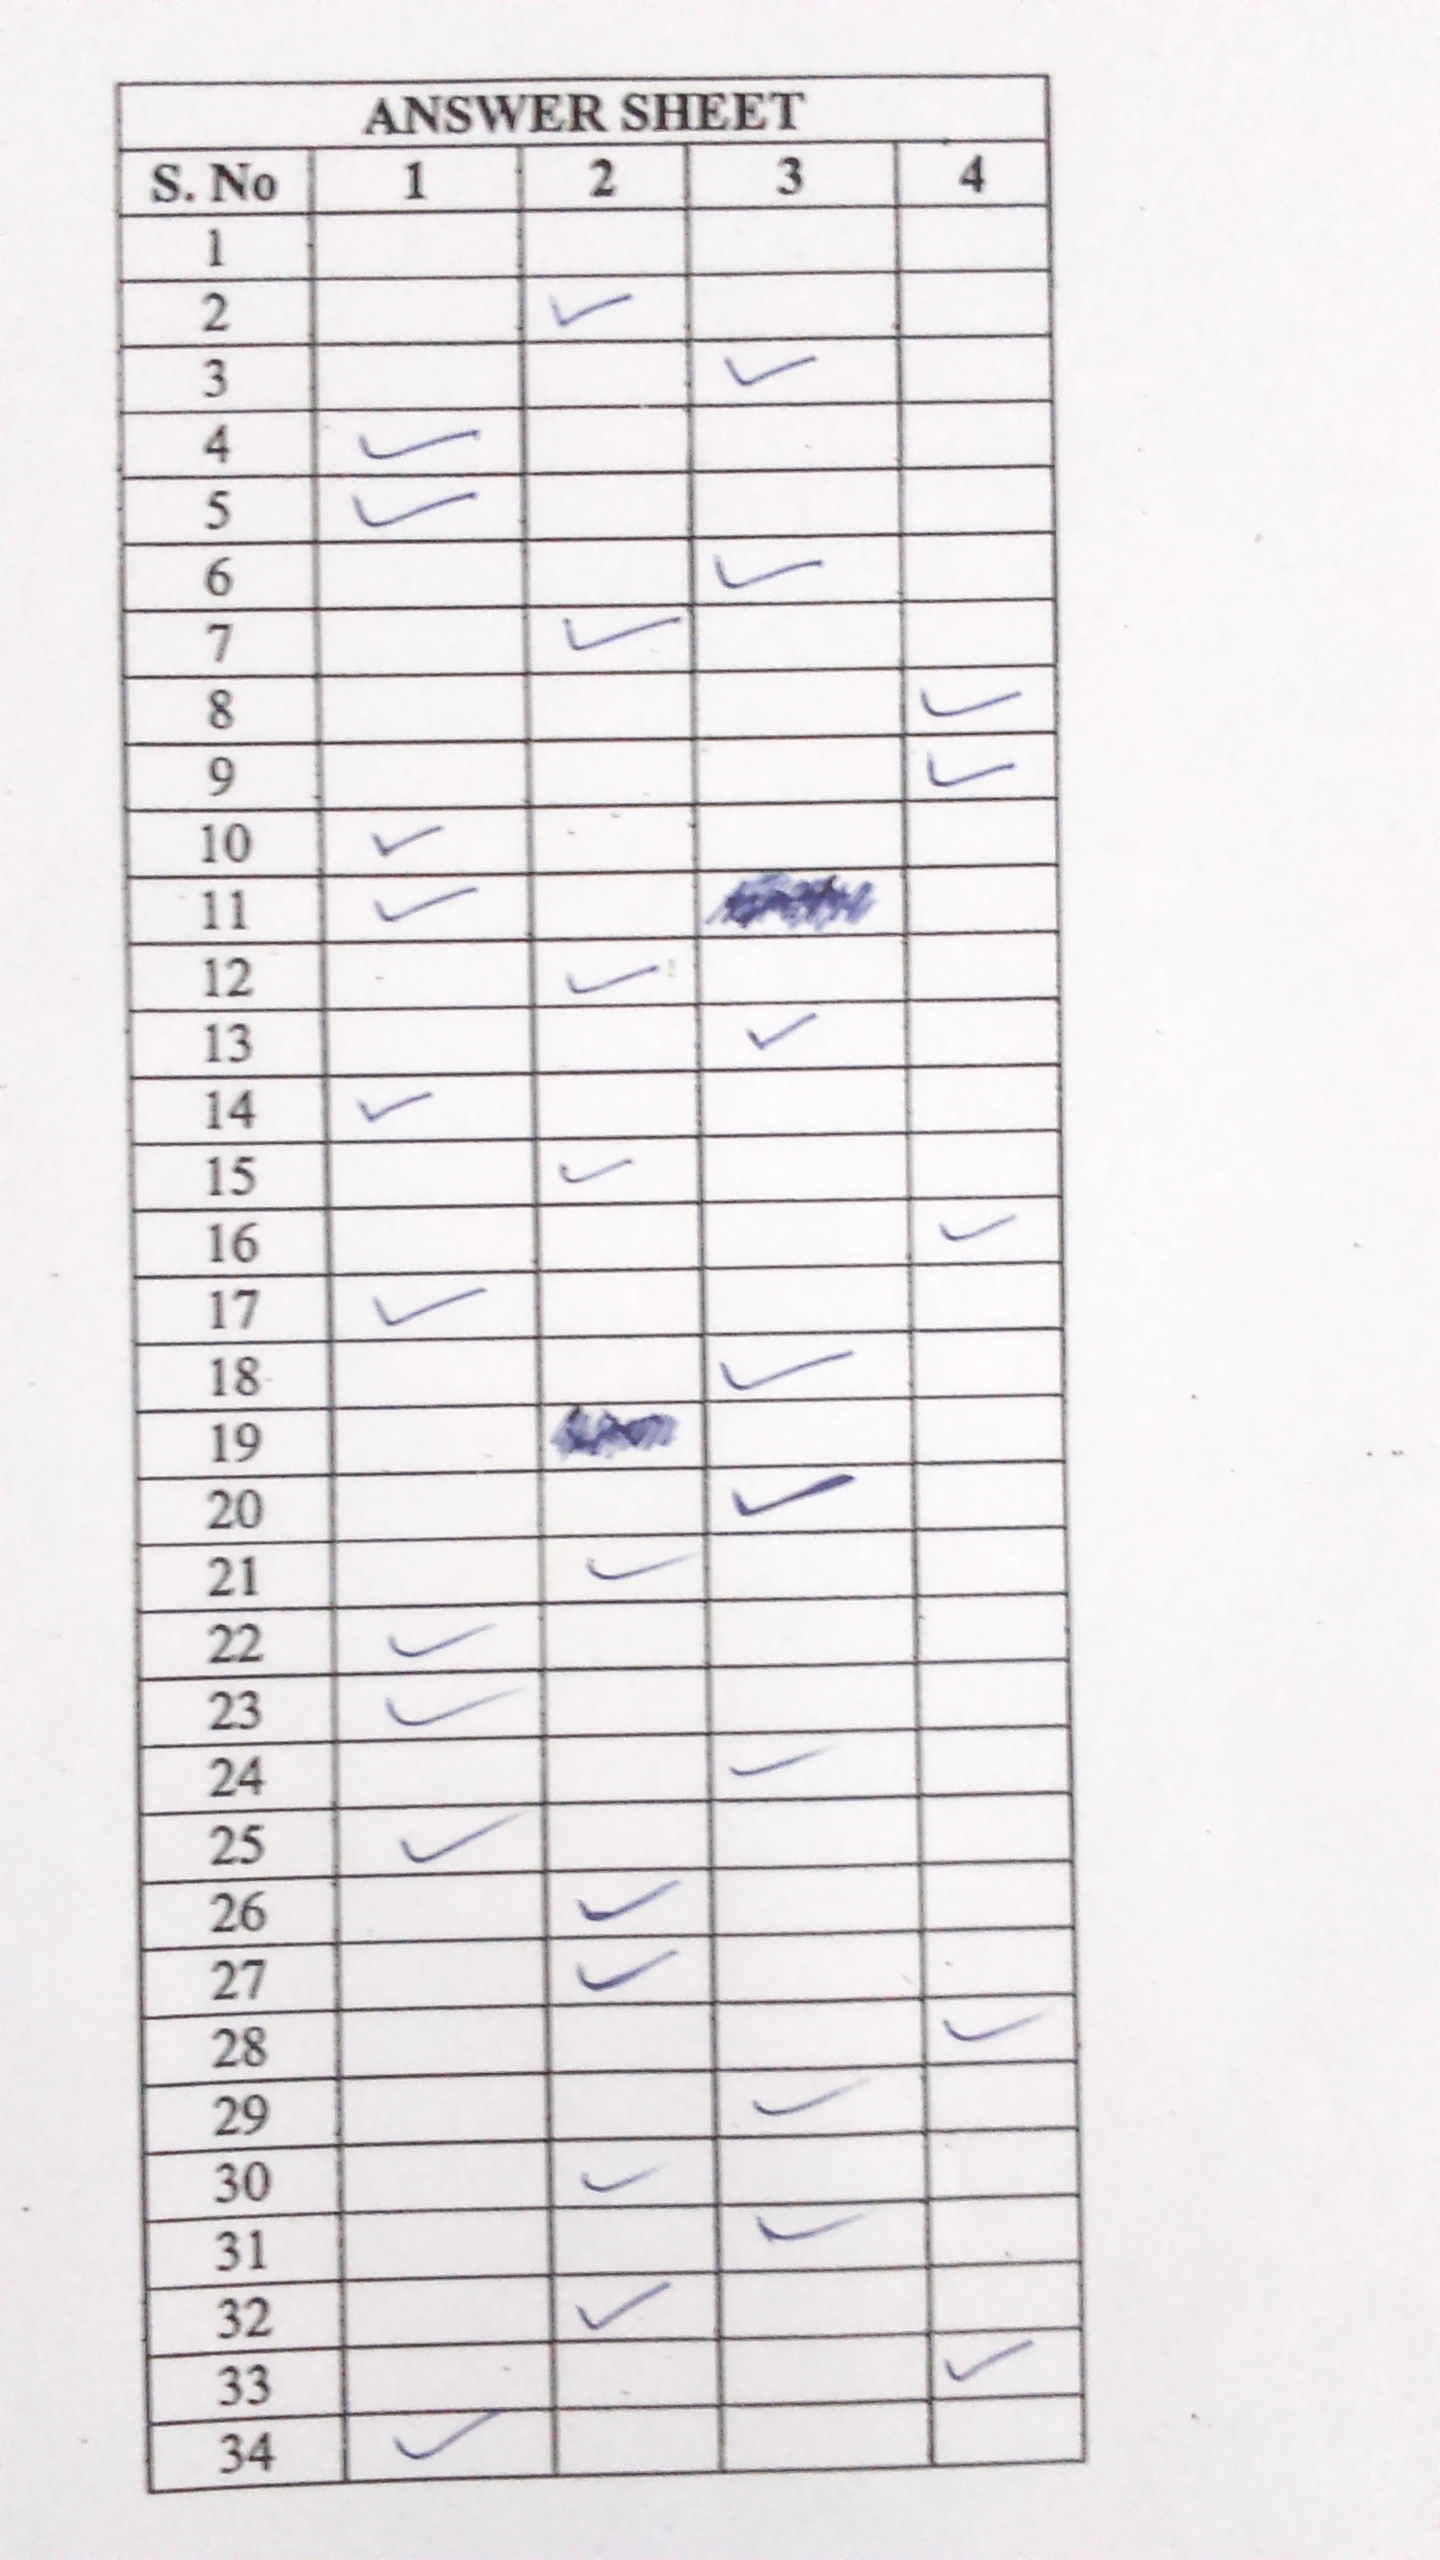 ANSWER SHEET
S. No 1 2 3 4
1
2 ✓
3 ✓
4 ✓
5 ✓
6 ✓
7 ✓
8 ✓
9 ✓
10 ✓
11 ✓
12 ✓
13 ✓
14 ✓
15 ✓
16 ✓
17 ✓
18 ✓
19
20 ✓
21 ✓
22 ✓
23 ✓
24 ✓
25 ✓
26 ✓
27 ✓
28 ✓
29 ✓
30 ✓
31 ✓
32 ✓
33 ✓
34 ✓